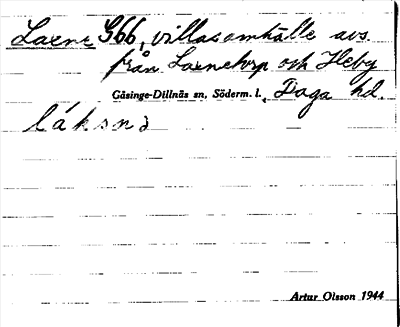 Laxne G66, villasamhälle avs.
från Laxnetorp och Heby
Gåsinge-Dillnäs sn, Söderm. l., Daga hd.
láksnə
Artur Olsson 1944